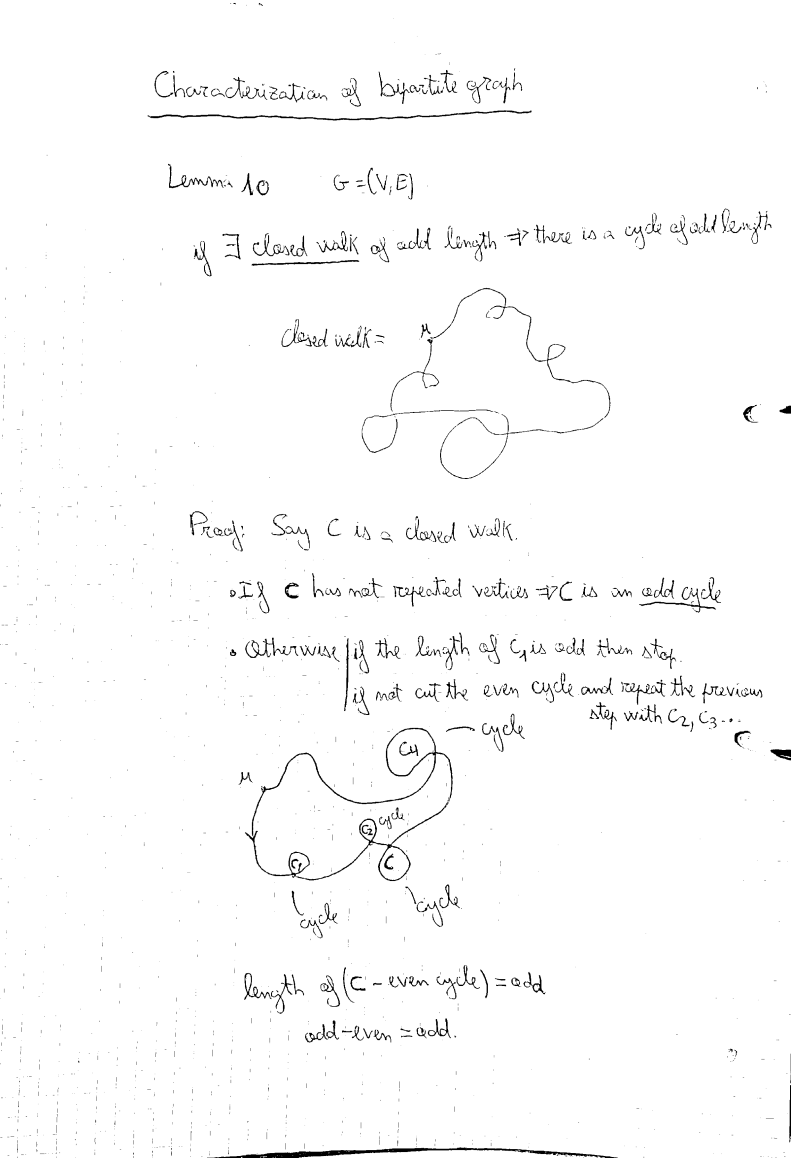 Characterization of bipartite graph
Lemma 10 G=(V,E)
if ∃ closed walk of odd length ⇒ there is a cycle of odd length
closed walk =
u
Proof: Say C is a closed walk.
• If C has not repeated vertices ⇒ C is an odd cycle
• Otherwise if the length of C1 is odd then stop.
if not cut the even cycle and repeat the previous
step with C2, C3...
C4 cycle
u
C2 cycle
C1 C
cycle cycle
length of (C - even cycle) = odd
odd - even = odd.